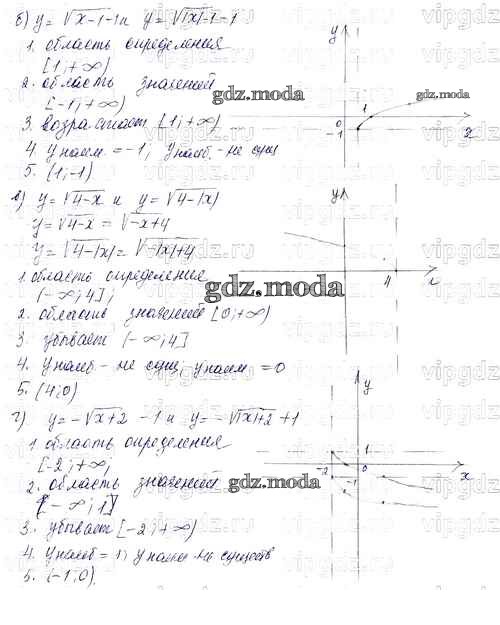 б) y = √x-1-1 и y = √|x|-1-1
1. область определения
[1; +∞)
2. область значений
[-1; +∞)
gdz.moda
3. возрастает [1; +∞)
4. y наим. = -1, y наиб. - не сущ
5. (1; -1)
y
1
0
-1
x
gdz.moda
в) y = √4-x и y = √4-|x|
y = √4-x = √-x+4
y = √4-|x| = √-|x|+4
1. область определения
(-∞; 4];
2. область значений [0; +∞)
3. убывает (-∞; 4]
4. y наиб - не сущ; y наим = 0
5. (4; 0)
gdz.moda
y
4
x
г) y = -√x+2 -1 и y = -√|x|+2 +1
1 область определения
[-2; +∞,
2. область значений
[-∞; 1]
3. убывает [-2; +∞)
4. y наиб = 1; y наим не существ
5. (-1; 0).
gdz.moda
y
1
-2
-1
0
x
gdz.moda
vipgdz